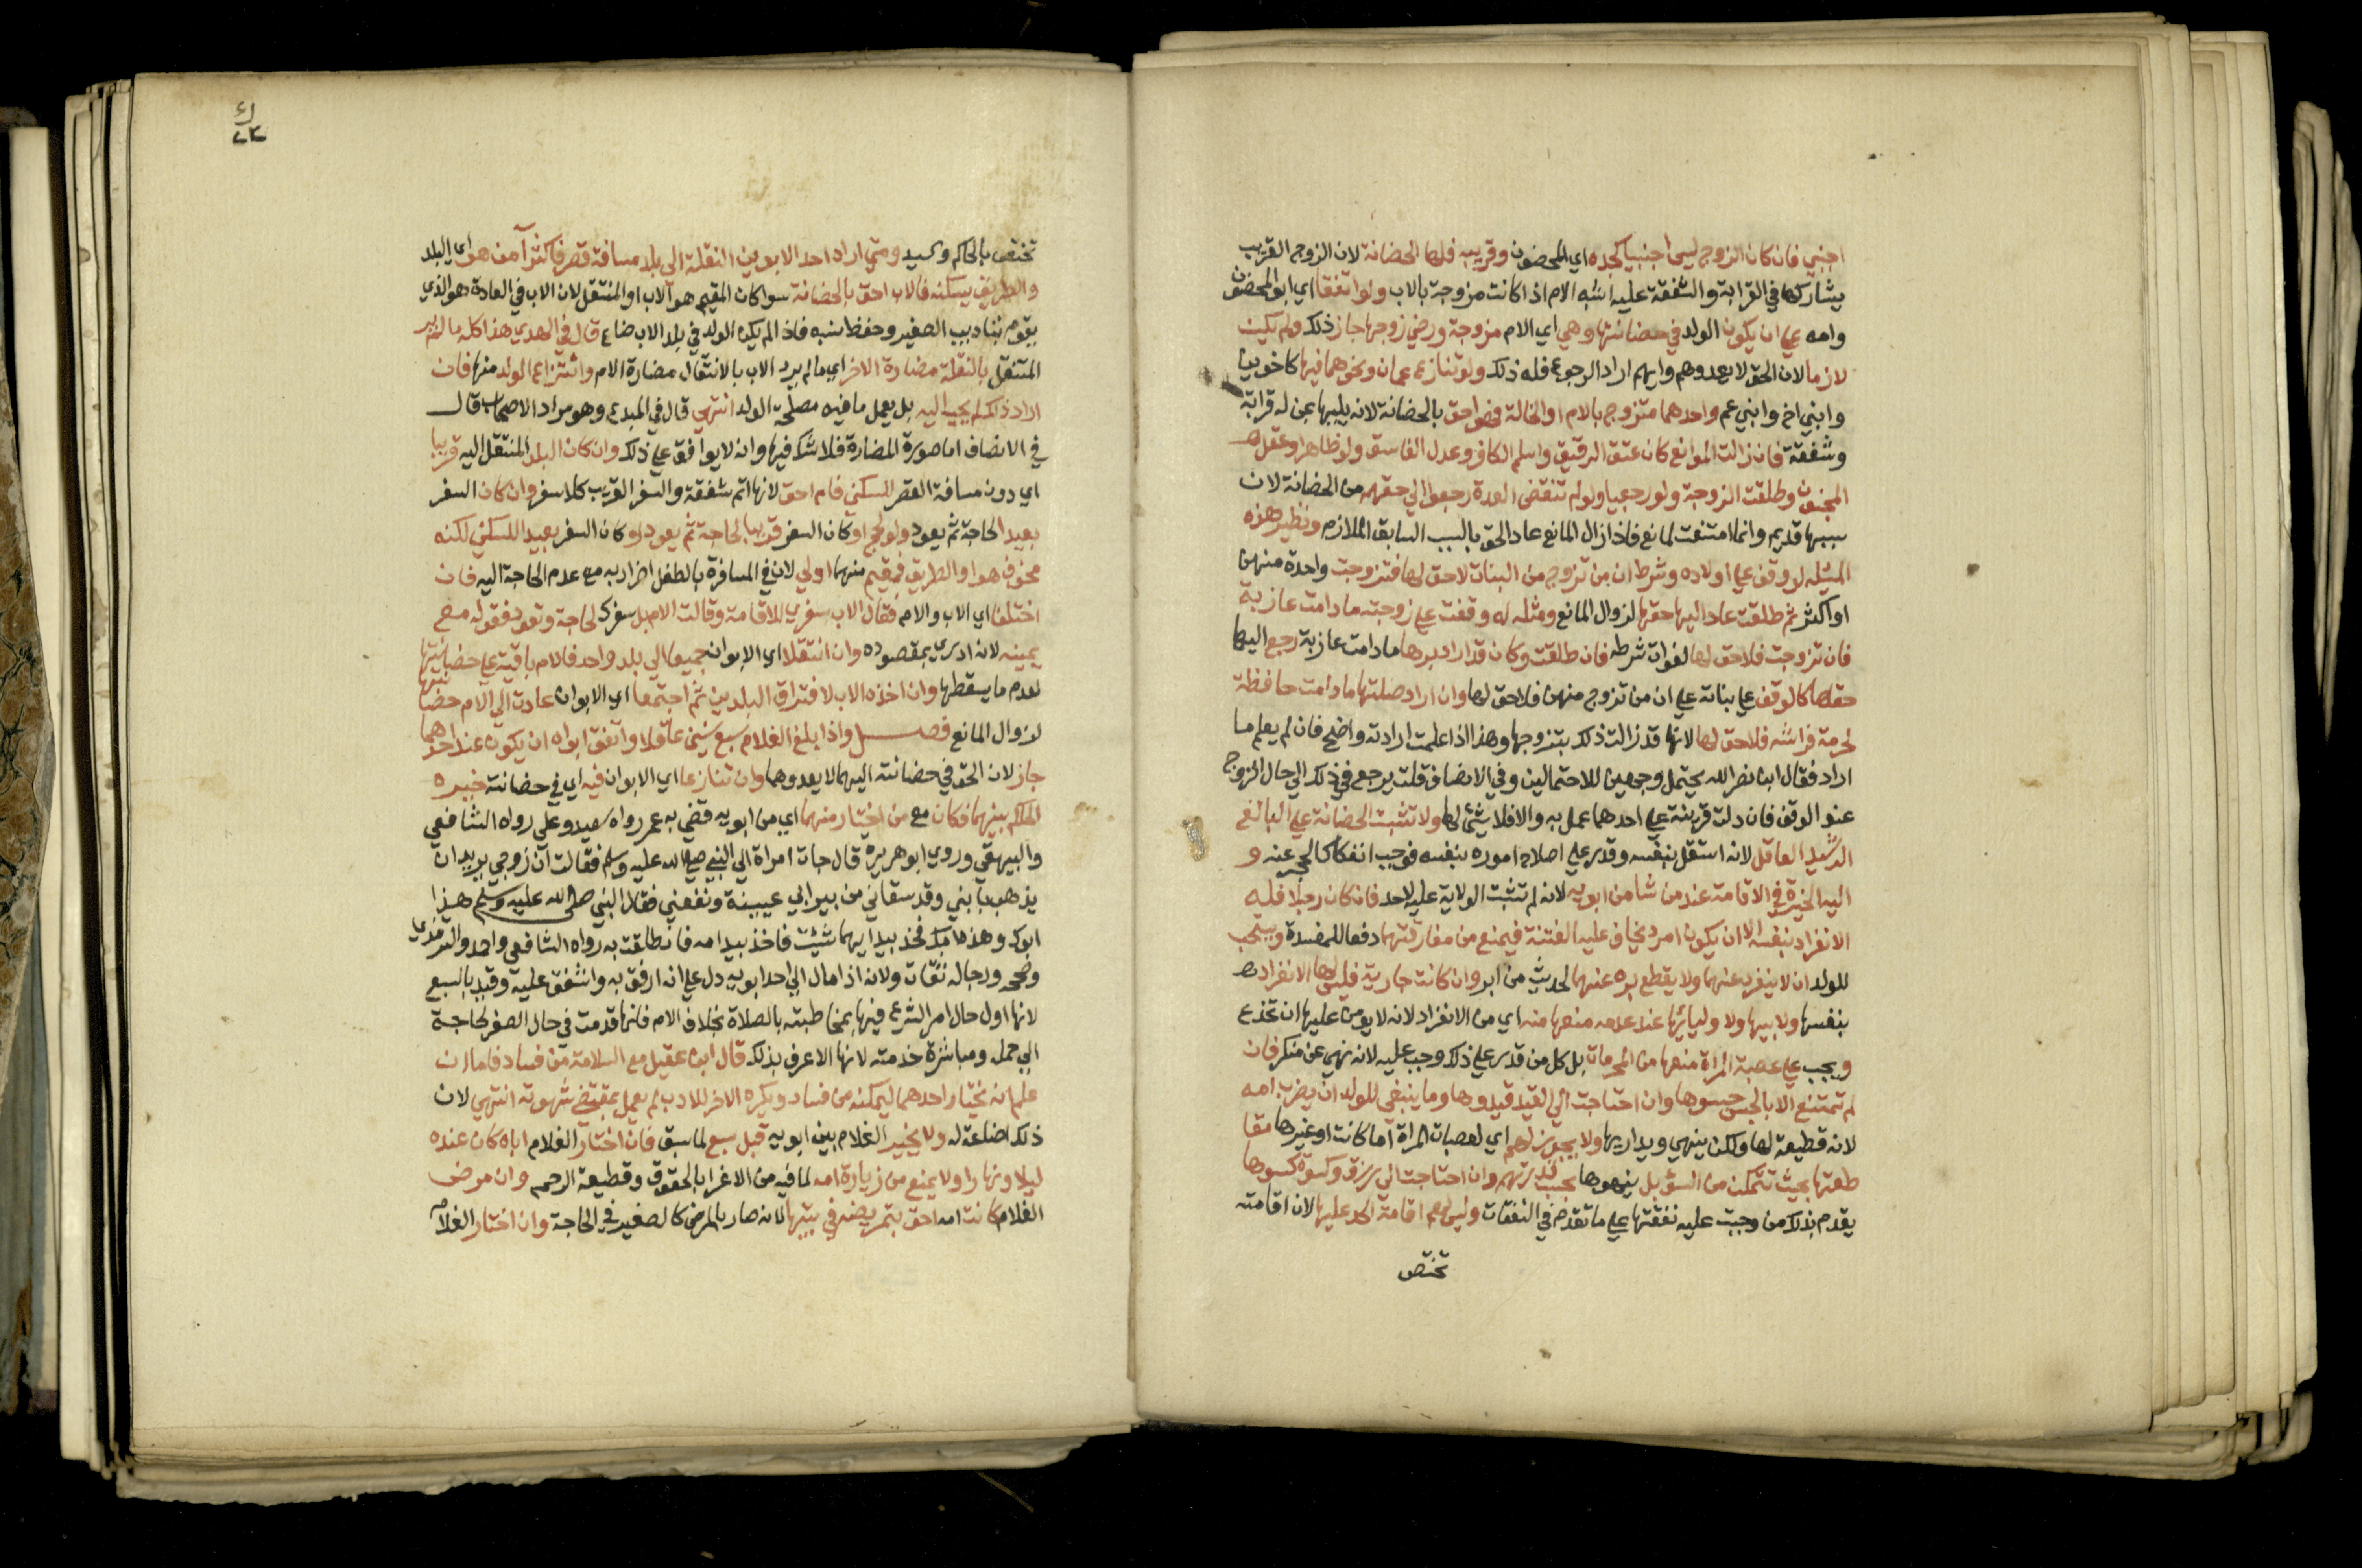 اجنبي فان كان الزوج ليس اجنبيا كجده اي المحضون وقريبه فلها الحضانة لان الزوج القريب
يشاركها في القرابة والشفقة عليه اشبه الام اذا كانت مزوجة بالاب ولو اتفقا اي ابو المحضون
وامه علي ان يكون الولد في حضانتها وهي اي الام مزوجة ورضي زوجها جاز ذلك ولم يكن
لازما لان الحق لا يعدوهم وايهم اراد الرجوع فله ذلك ولو تنازع عمان ونحوهما فيها كاخوين
وابني اخ وابني عم واحدهما متزوج بالام او الخالة فهو احق بالحضانة لانه يليها بمن له قرابة
وشفقة فان زالت الموانع كان عتق الرقيق واسلم الكافر وعدل الفاسق ولو ظاهرا وعقل
المجنون وطلقت الزوجة ولو رجعيا ولو لم تنقض العدة رجعوا الي حقهم من الحضانة لان
سببها قديم وانما امتنعت لمانع فاذا زال المانع عاد الحق بالسبب السابق الملازم ونظير هذه
المسئلة لو وقف علي اولاده وشرط ان من تزوج من البنات لا حق لها فتزوجت واحدة منهن
او اكثر ثم طلقت عاد اليها حقها لزوال المانع ومثله لو وقفت علي زوجته ما دامت عازبة
فان تزوجت فلا حق لها لفوات شرطه فان طلقت وكان قد اراد برها ما دامت عازبة رجع اليها
حقها كالوقف علي بناته علي ان من تزوج منهن فلا حق لها وان اراد صلتها ما دامت حافظة
لحرمة فراشه فلا حق لها لانها قد زالت ذلك بتزوجها وهذا اذا علمت ارادته واضح فان لم يعلم ما
اراد فقال ابن نصر الله يحتمل وجهين للاحتمالين وفي الانصاف قلت يرجع في ذلك الي حال الزوج
عند الوقف فان دلت قرينة علي احدهما عمل به والا فلا شئ لها ولا تثبت الحضانة علي البالغ
الرشيد العاقل لانه استقل بنفسه وقدر علي اصلاح اموره بنفسه فوجب انفكاك الحجر عنه و
اليه الخيرة في الاقامة عند من شا من ابويه لانه لم تثبت الولاية عليه لاحد فان كان رجلا فله
الانفراد بنفسه الا ان يكون امرد يخاف عليه الفتنة فيمنع من مفارقتهما دفعا للمفسدة ويستحب
للولد ان لا ينفرد عنهما ولا يقطع بره عنهما لحديث من ابر وان كانت جارية فليس لها الانفراد
بنفسها ولابيها ولاوليائها عند عدمه منعها منه اي من الانفراد لانه لا يومن عليها ان تخدع
ويجب علي عصبة المراة منعها من المحرمات بل كل من قدر علي ذلك وجب عليه لانه نهي عن منكر فان
لم تمتنع الا بالحبس حبسوها وان احتاجت الي القيد قيدوها وما ينبغي للولد ان يضرب امه
لانه قطيعة لها ولكن ينهي ويداريها ولا يجوز لهم اي لعصبات المراة اما كانت او غيرها مقا
طعتها بحيث تتمكن من السؤ بل ينهوها بحسب قدرتهم وان احتاجت الي رزق وكسوة كسوها
يقدم بذلك من وجبت عليه نفقتها علي ما تقدم في النفقات وليس لهم اقامة الحد عليها لان اقامته
تختص
تختص بالحاكم وسيد ومتي اراد احد الابوين النقلة الي بلد مسافة قصر فاكثر آمن هو اي البلد
والطريق يسكنه فالاب احق بالحضانة سوا كان المقيم هو الاب او المنتقل لان الاب في العادة هو الذي
يقوم بتاديب الصغير وحفظ نسبه فاذا لم يكن الولد في بلد الاب ضاع قال في الهدي هذا كله ما لم يرد
المنتقل بالنقلة مضارة الاخر اي ما لم يرد الاب بالانتقال مضارة الام وانتزاع الولد منها فان
اراد ذلك لم يجب اليه بل يعمل ما فيه مصلحة الولد انتهي قال في المبدع وهو مراد الاصحاب قال
في الانصاف اما صورة المضارة فلا شك فيها وانه لا يوافق علي ذلك وان كان البلد المنتقل اليه قريبا
اي دون مسافة القصر للسكني فام احق لانها اتم شفقة والسفر القريب كلا سفر وان كان السفر
بعيدا لحاجة ثم يعود ولو لحج او كان السفر قريبا لحاجة ثم يعود او كان السفر بعيدا للسكني لكنه
مخوف هو او الطريق فمقيم منهما اولي لان في المسافرة بالطفل اضرارا به مع عدم الحاجة اليه فان
اختلفا اي الاب والام فقال الاب سفري للاقامة وقالت الام بل سفرك لحاجة وتعود فقوله مع
يمينه لانه ادري بمقصوده وان انتقلا اي الابوان جميعا الي بلد واحد فالام باقية علي حضانتها
لعدم ما يسقطها وان اخذه الاب لافتراق البلدين ثم اجتمعا اي الابوان عادت الي الام حضانتها
لزوال المانع فصل واذا بلغ الغلام سبع سنين عاقلا واتفق ابواه ان يكون عند احدهما
جاز لان الحق في حضانته اليهما لا يعدوهما وان تنازعا اي الابوان فيه اي في حضانته خيره
الحاكم بينهما فكان مع من اختار منهما اي من ابويه قضي به عمر رواه سعيد وعلي رواه الشافعي
والبيهقي وروي ابو هريرة قال جات امراة الي النبي صلي الله عليه وسلم فقالت ان زوجي يريد ان
يذهب بابني وقد سقاني من بير ابي عيبنة ونفعني فقال النبي صلي الله عليه وسلم هذا
ابوك وهذه امك فخذ بيد ايهما شيئت فاخذ بيد امه فانطلقت به رواه الشافعي واحمد والترمذي
وصححه ورجاله ثقات ولانه اذا مال الي احد ابويه دل علي انه ارفق به واشفق عليه وقيد بالسبع
لانها اول حال امر الشرع فيها بمخاطبته بالصلاة بخلاف الام فانها قدمت في حال الصغر لحاجة
الي حمله ومباشرة خدمته لانها الاعرف بذلك قال ابن عقيل مع السلامة من فساد فاما ان
علم انه يختار احدهما ليمكنه من فساد ويكره الاخر للادب لم يعمل بمقتضي شهوته انتهي لان
ذلك اضاعة له ولا يخير الغلام بين ابويه قبل سبع لما سبق فان اختار الغلام اباه كان عنده
ليلا ونهارا ولا يمنع من زيارة امه لما فيه من الاغرا بالعقوق وقطيعة الرحم وان مرض
الغلام كانت امه احق بتمريضه في بيتها لانه صار بالمرض كالصغير في الحاجة وان اختار الغلام